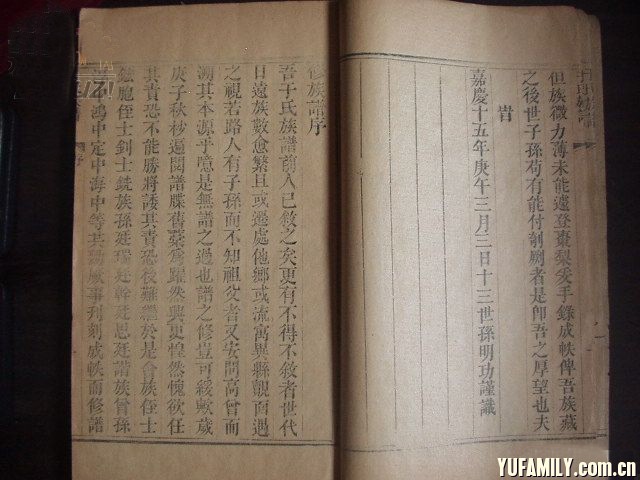 于氏族譜
但族微力薄未能遽登棗梨爰手錄成帙俾吾族藏
之後世子孫苟有能付剞劂者是即吾之厚望也夫
旹
嘉慶十五年庚午三月三日十三世孫明功謹識
修族譜序
吾于氏族譜前人已敘之矣更有不得不敘者世代
日遠族數愈繁且或遷處他鄉或流寓異縣覿面遇
之視若路人有子孫而不知祖父者又安問高曾而
溯其本源乎噫是無譜之過也譜之修豈可緩歟歲
庚子秋杪遍閱譜牒舊藁為躍然興更惶然愧欲任
其責恐不能勝將諉其責恐後難繼於是會族侄士
士釗士銃族孫廷瑞廷幹廷思廷諧族曾孫
鴻中定中海中等共勷厥事刊刻成帙而修譜
YUFAMILY.com.cn